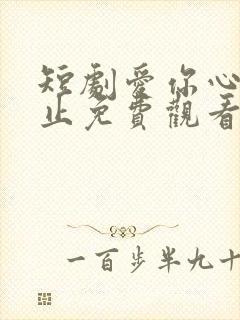 短劇愛你心
止免費觀看
一百步半九十